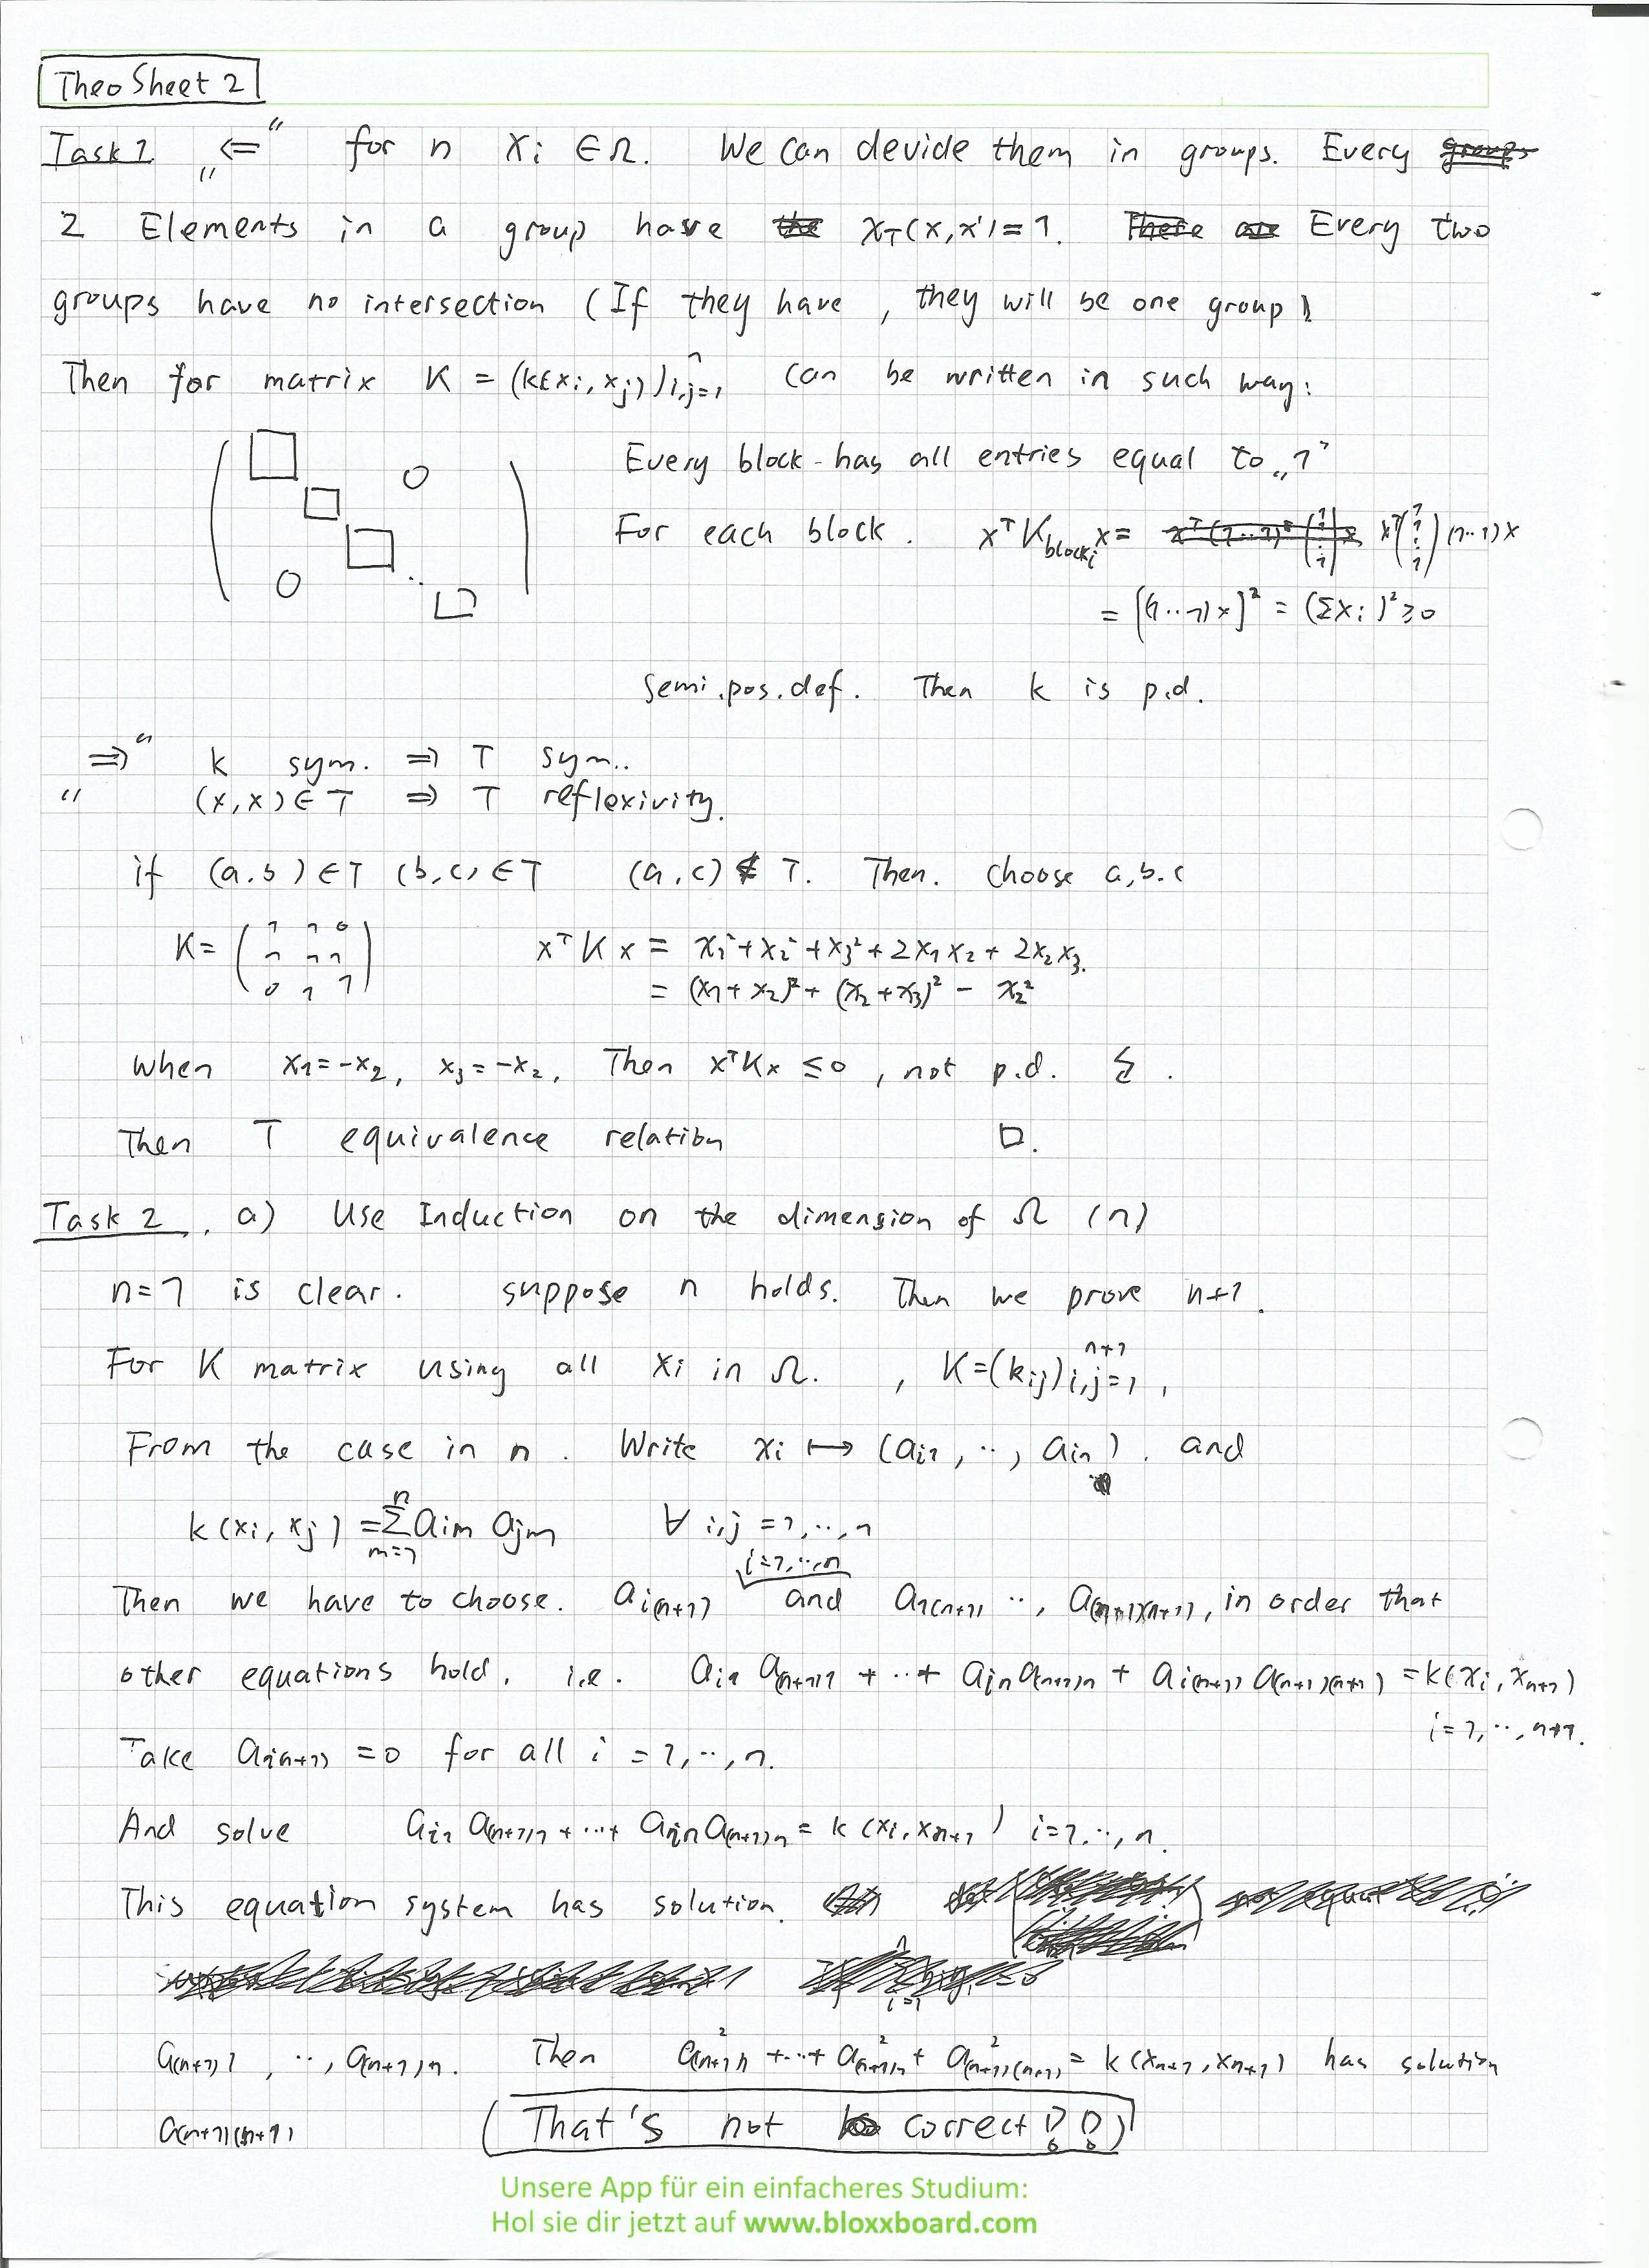 Theo Sheet 2
Task 1 „⇐“ for n xi ∈ Ω. We can devide them in groups. Every groups
2 Elements in a group have the χT(x,x')=1. There are Every two
groups have no intersection (If they have, they will be one group)
Then for matrix K = (k(xi, xj))i,j=1^n can be written in such way:
0
0
Every block has all entries equal to „1“
For each block. x^T K_blocki x = x^T (1 ⋮ 1) (1··1) x
= [(1··1)x]² = (Σxi)² ≥ 0
semi.pos.def. Then k is p.d.
„⇒“ k sym. ⇒ T sym..
(x,x) ∈ T ⇒ T reflexivity.
if (a,b) ∈ T (b,c) ∈ T (a,c) ∉ T. Then. choose a,b,c
K = (1 1 0 / 1 1 1 / 0 1 1) x^T K x = x1² + x2² + x3² + 2x1x2 + 2x2x3.
= (x1+x2)² + (x2+x3)² - x2²
when x1=-x2, x3=-x2, Then x^T K x ≤ 0, not p.d. ↯.
Then T equivalence relation □.
Task 2. a) Use Induction on the dimension of Ω (n)
n=1 is clear. suppose n holds. Then we prove n+1.
For K matrix using all xi in Ω. , K=(kij)i,j=1^n+1,
From the case in n. Write xi ↦ (ai1, ··, ain). and
k(xi, xj) = Σ_{m=1}^n aim ajm ∀ i,j = 1,··,n
Then we have to choose. ai(n+1) i=1,··,n and a1(n+1) ··, a(n+1)(n+1), in order that
other equations hold. i.e. ai1 a(n+1)1 + ··+ ain a(n+1)n + ai(n+1) a(n+1)(n+1) = k(xi, xn+1)
i=1,··,n+1.
Take ai(n+1) = 0 for all i = 1,··,n.
And solve ai1 a(n+1)1 + ···+ ain a(n+1)n = k(xi, xn+1) i=1,··,n.
This equation system has solution.
a(n+1)1, ··, a(n+1)n. Then a²(n+1)1 +···+ a²(n+1)n + a²(n+1)(n+1) = k(xn+1, xn+1) has solution
a(n+1)(n+1) (That's not correct!!)
Unsere App für ein einfacheres Studium:
Hol sie dir jetzt auf www.bloxxboard.com